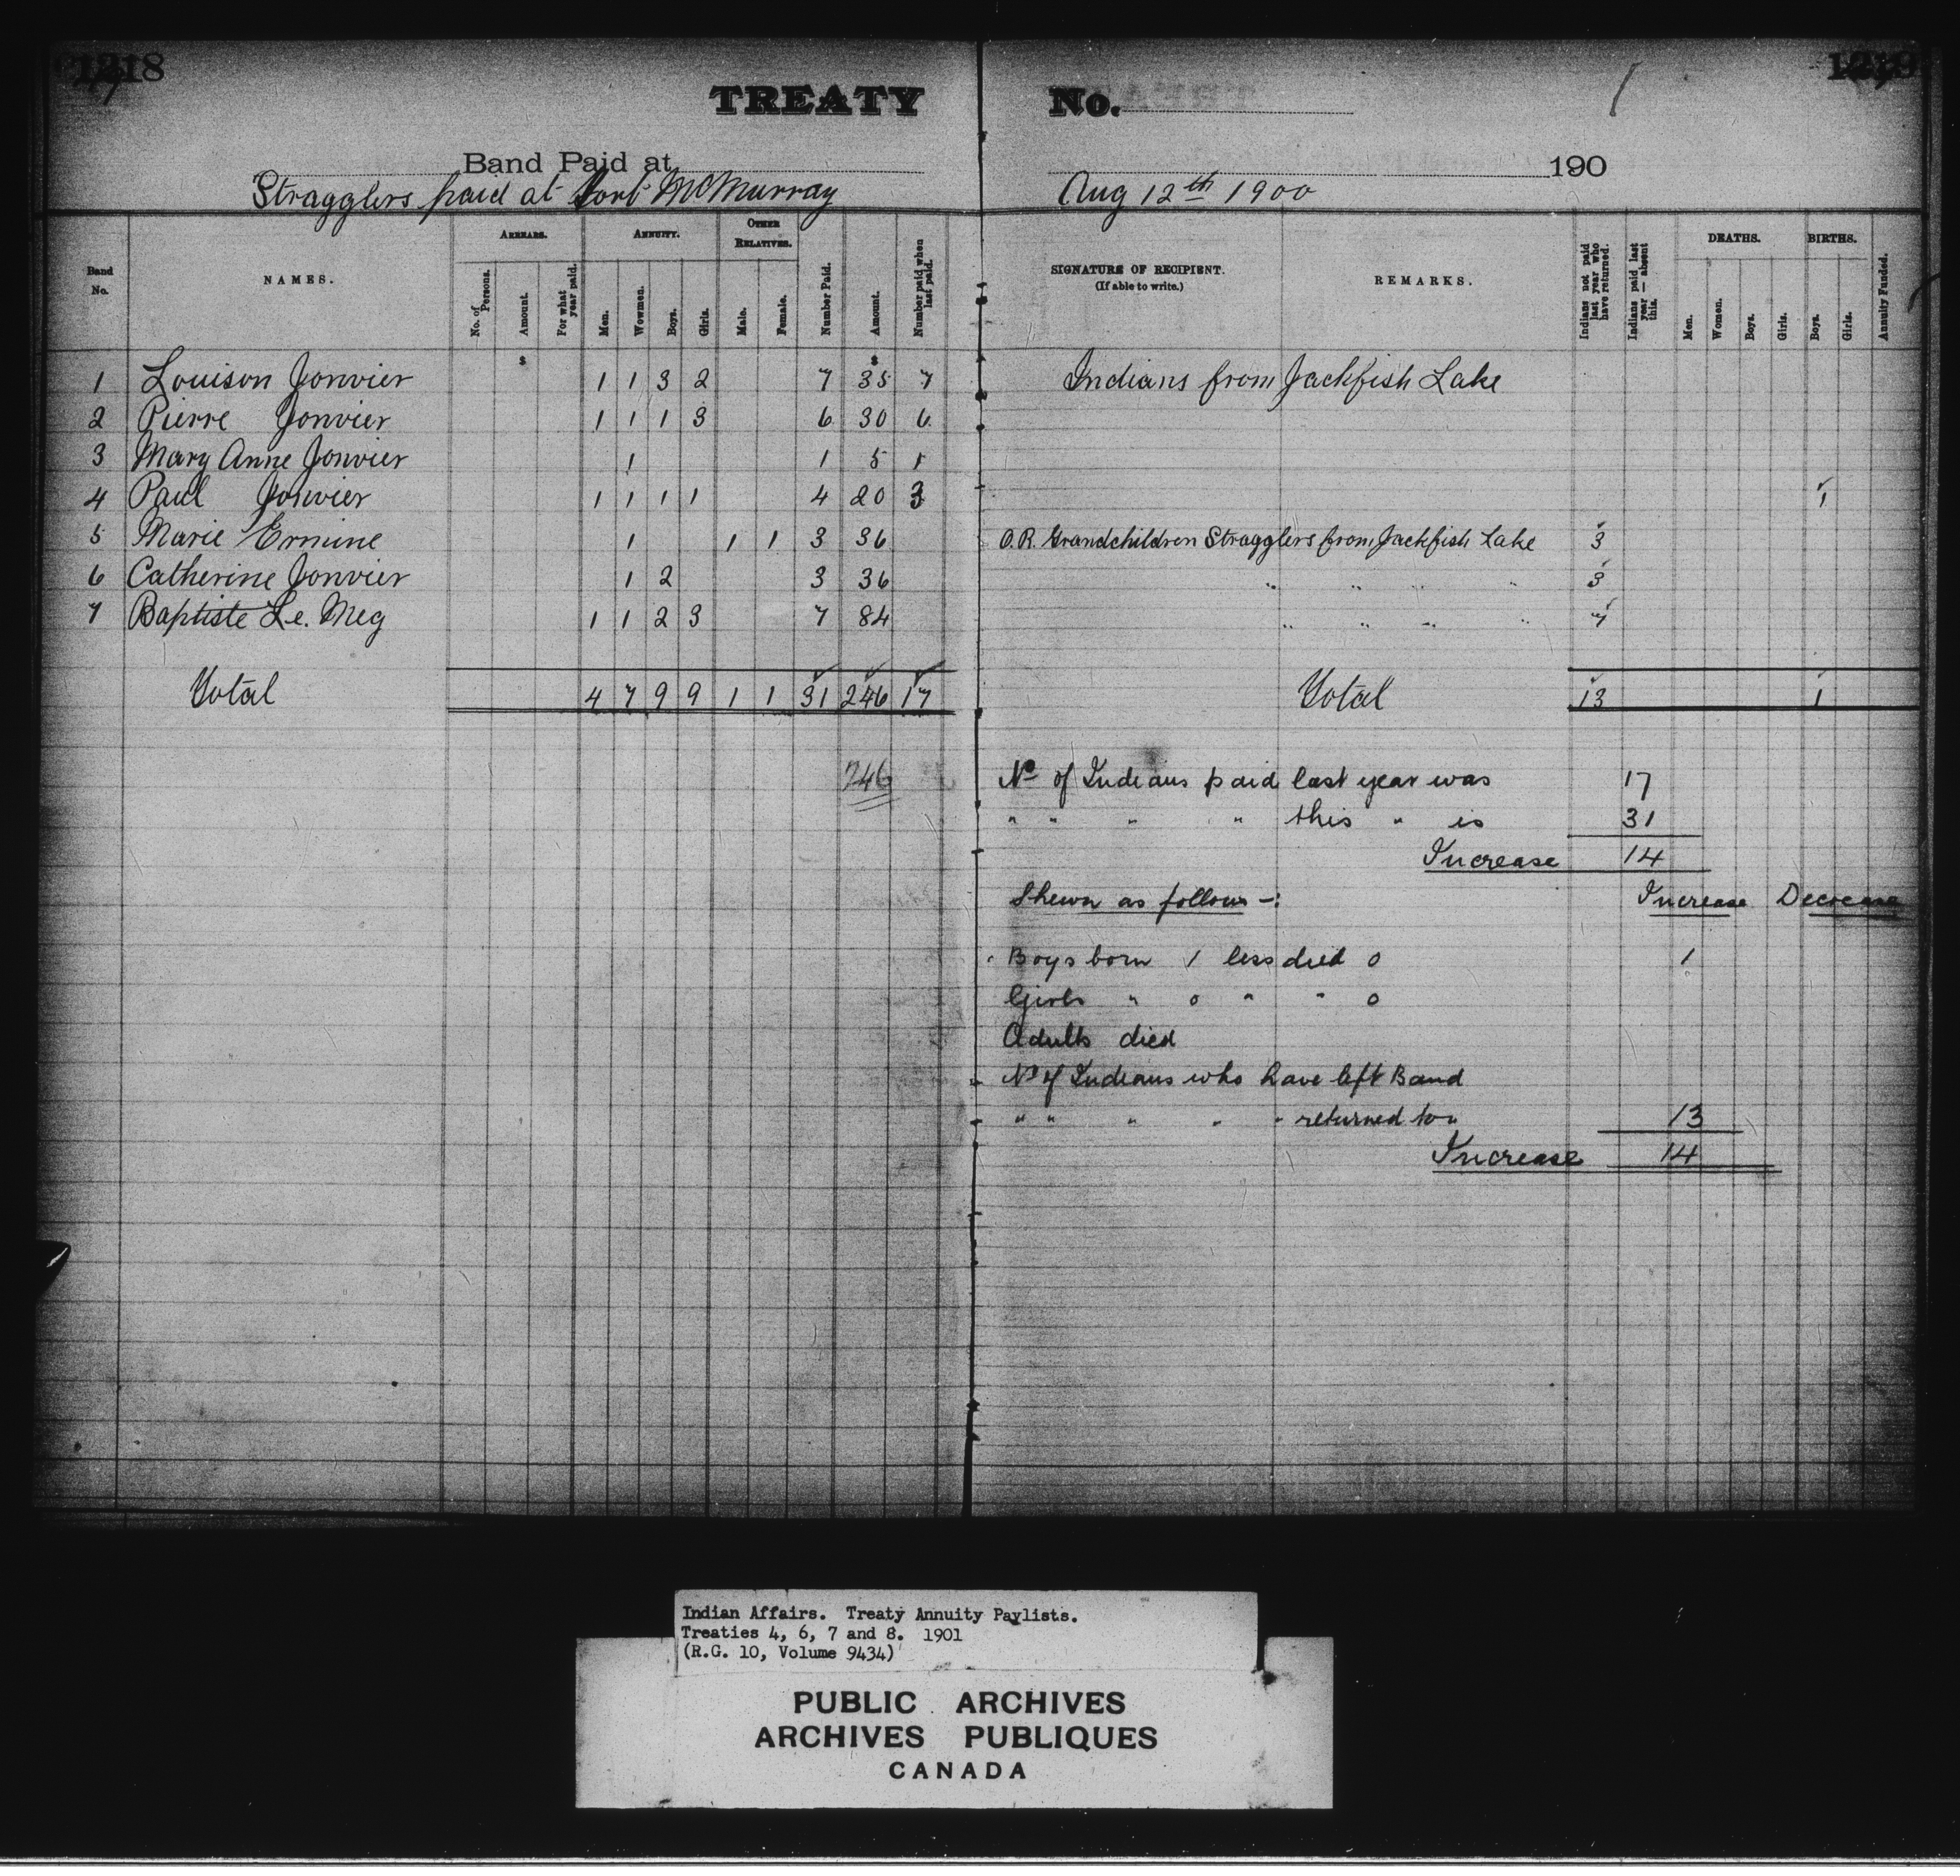 1218
TREATY
Band Paid at
Stragglers paid at Fort McMurray
No.
190
Aug 12th 1900
Band No.
NAMES.
ARREARS.
No. of Persons.
Amount.
For what year paid.
ANNUITY.
Men.
Wowmen.
Boys.
Girls.
OTHER RELATIVES.
Male.
Female.
Number Paid.
Amount.
Number paid when last paid.
SIGNATURE OF RECIPIENT.
(If able to write.)
REMARKS.
Indians not paid last year who have returned.
Indians paid last year — absent this.
DEATHS.
Men.
Women.
Boys.
Girls.
BIRTHS.
Boys.
Girls.
Annuity Funded.
$ $
1 Louison Janvier 1 1 3 2 7 35 7 Indians from Jackfish Lake
2 Pierre Janvier 1 1 1 3 6 30 6
3 Mary Anne Janvier 1 1 5 1
4 Paul Janvier 1 1 1 1 4 20 3 1
5 Marie Ermine 1 1 1 3 36 O.R. Grandchildren Stragglers from Jackfish Lake 3
6 Catherine Janvier 1 2 3 36 " " " " 3
7 Baptiste Le. Meg 1 1 2 3 7 84 " " " " 7
Total 4 7 9 9 1 1 31 246 17 Total 13 1
246
No of Indians paid last year was 17
" " " " this " is 31
Increase 14
Shewn as follows -:
Increase Decrease
Boys born 1 less died 0 1
Girls " 0 " " 0
Adults died
No of Indians who have left Band
" " " " " returned to " 13
Increase 14
Indian Affairs. Treaty Annuity Paylists.
Treaties 4, 6, 7 and 8. 1901
(R.G. 10, Volume 9434)
PUBLIC ARCHIVES
ARCHIVES PUBLIQUES
CANADA